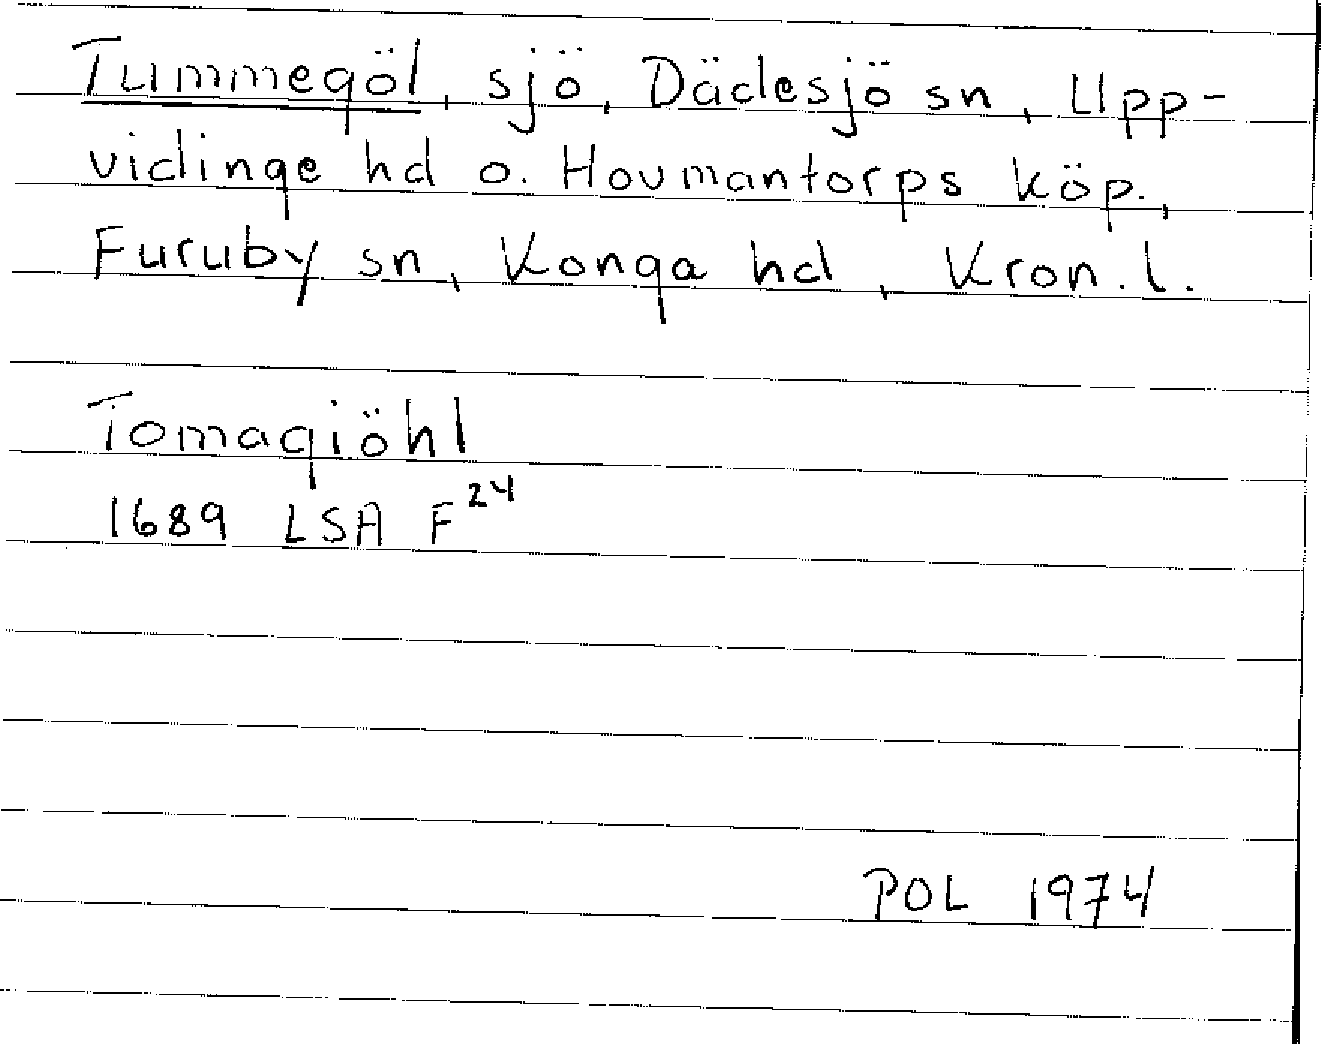 Tummegöl, sjö, Dädesjö sn, Upp-
vidinge hd o. Hovmantorps köp.,
Furuby sn, Konga hd, Kron. l.
Tomagiöhl
1689 LSA F24
POL 1974